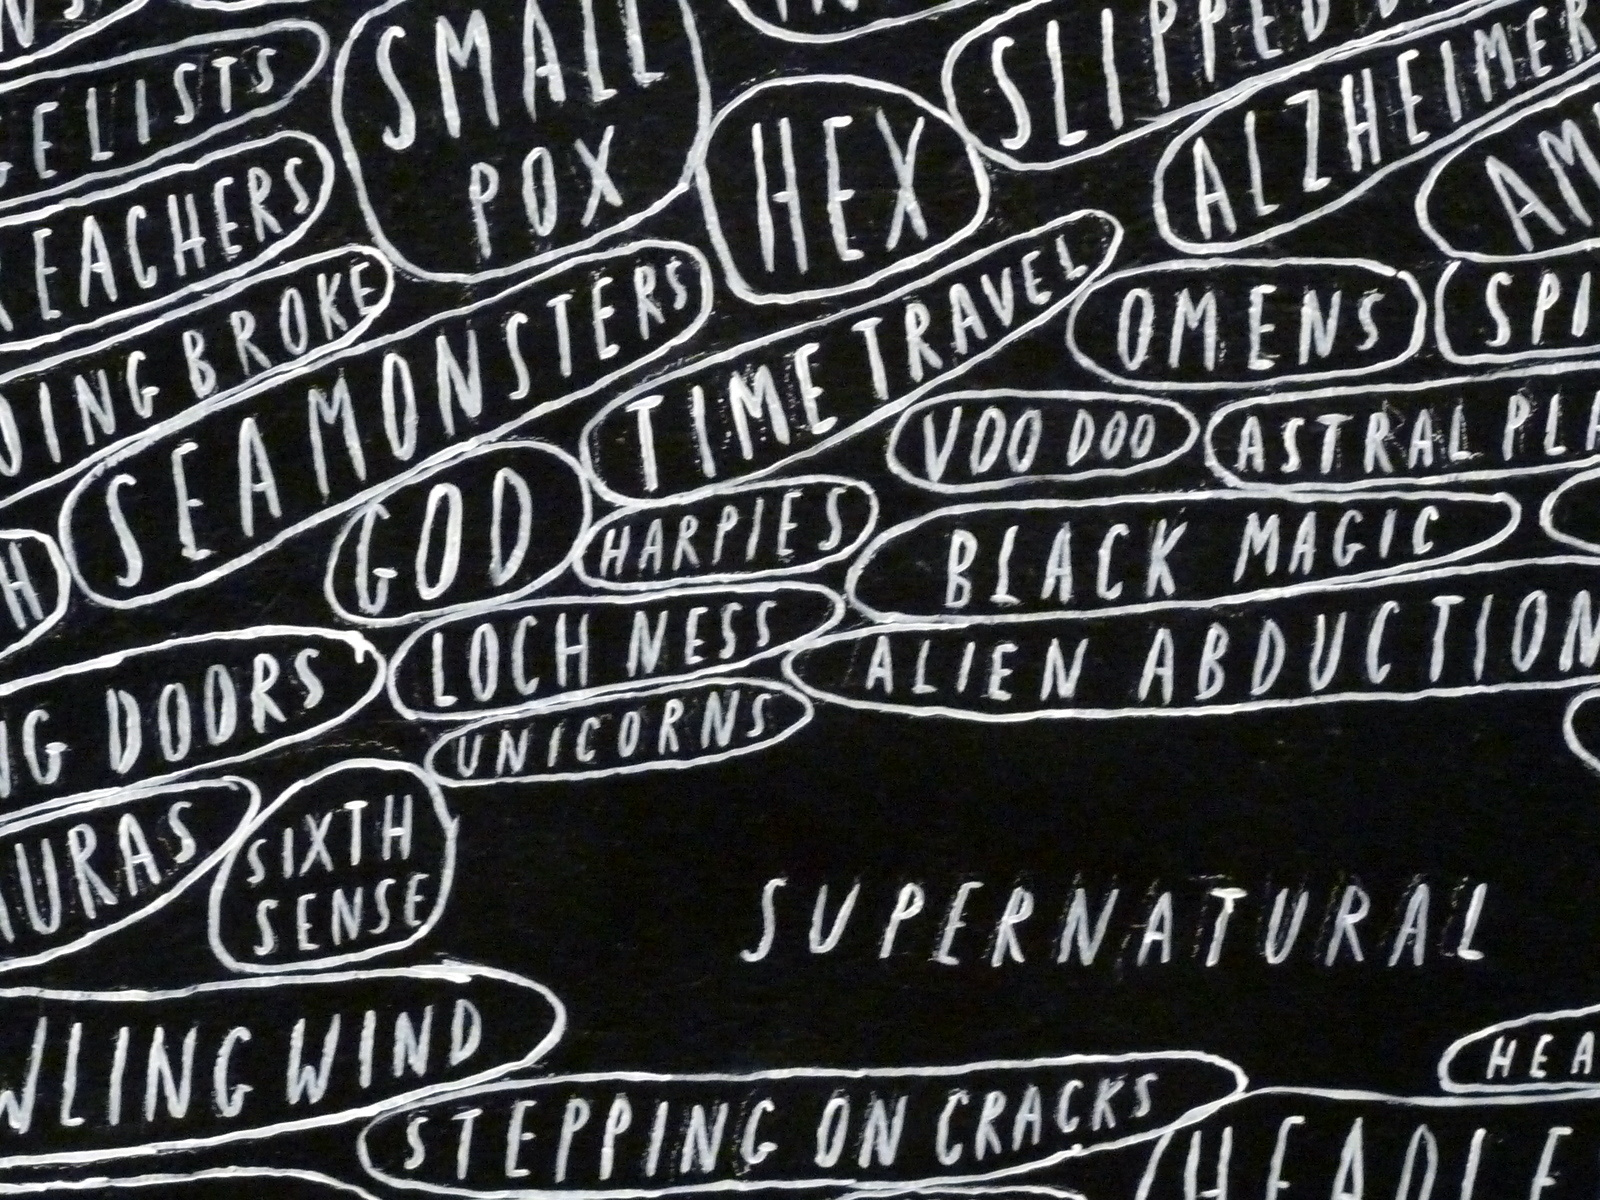 SMALL
POX
HEX
SLIPPED
ALZHEIMER
GELISTS
REACHERS
DING BROKE
SEA MONSTERS
TIME TRAVEL
OMENS
SPI
AM
VOO DOO
ASTRAL PLA
GOD
HARPIES
BLACK MAGIC
H
LOCH NESS
ALIEN ABDUCTION
NG DOORS
UNICORNS
URAS
SIXTH
SENSE
SUPERNATURAL
WLING WIND
HEA
STEPPING ON CRACKS
HEADLE